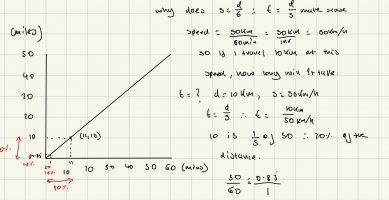 why does s = d/t ∴ t = d/s make sense
(miles)
speed = 50km/60min = 50km/1hr = 50km/h
so if i travel 10km at this
speed, how long will it take.
t = ? d = 10km, s = 50km/h
t = d/s ∴ t = 10km/50km/h
10 is 1/5 of 50 ∴ 20% of the
distance.
50/60 = 0.83/1
50
40
30
20
10
(12,10)
10 20 30 40 50 60 (mins)
20%